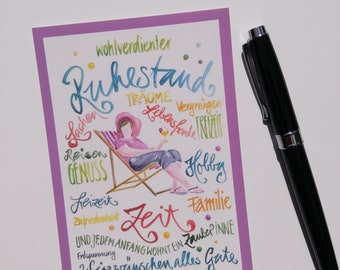 wohlverdienter
Ruhestand
TRÄUME
Vergnügen
Lachen
Lebensfreude
FREIZEIT
Reisen
GENUSS
Hobby
Freizeit
Familie
Zufriedenheit
Zeit
UND JEDEM ANFANG WOHNT EIN Zauber INNE
Entspannung
wünschen alles Gute